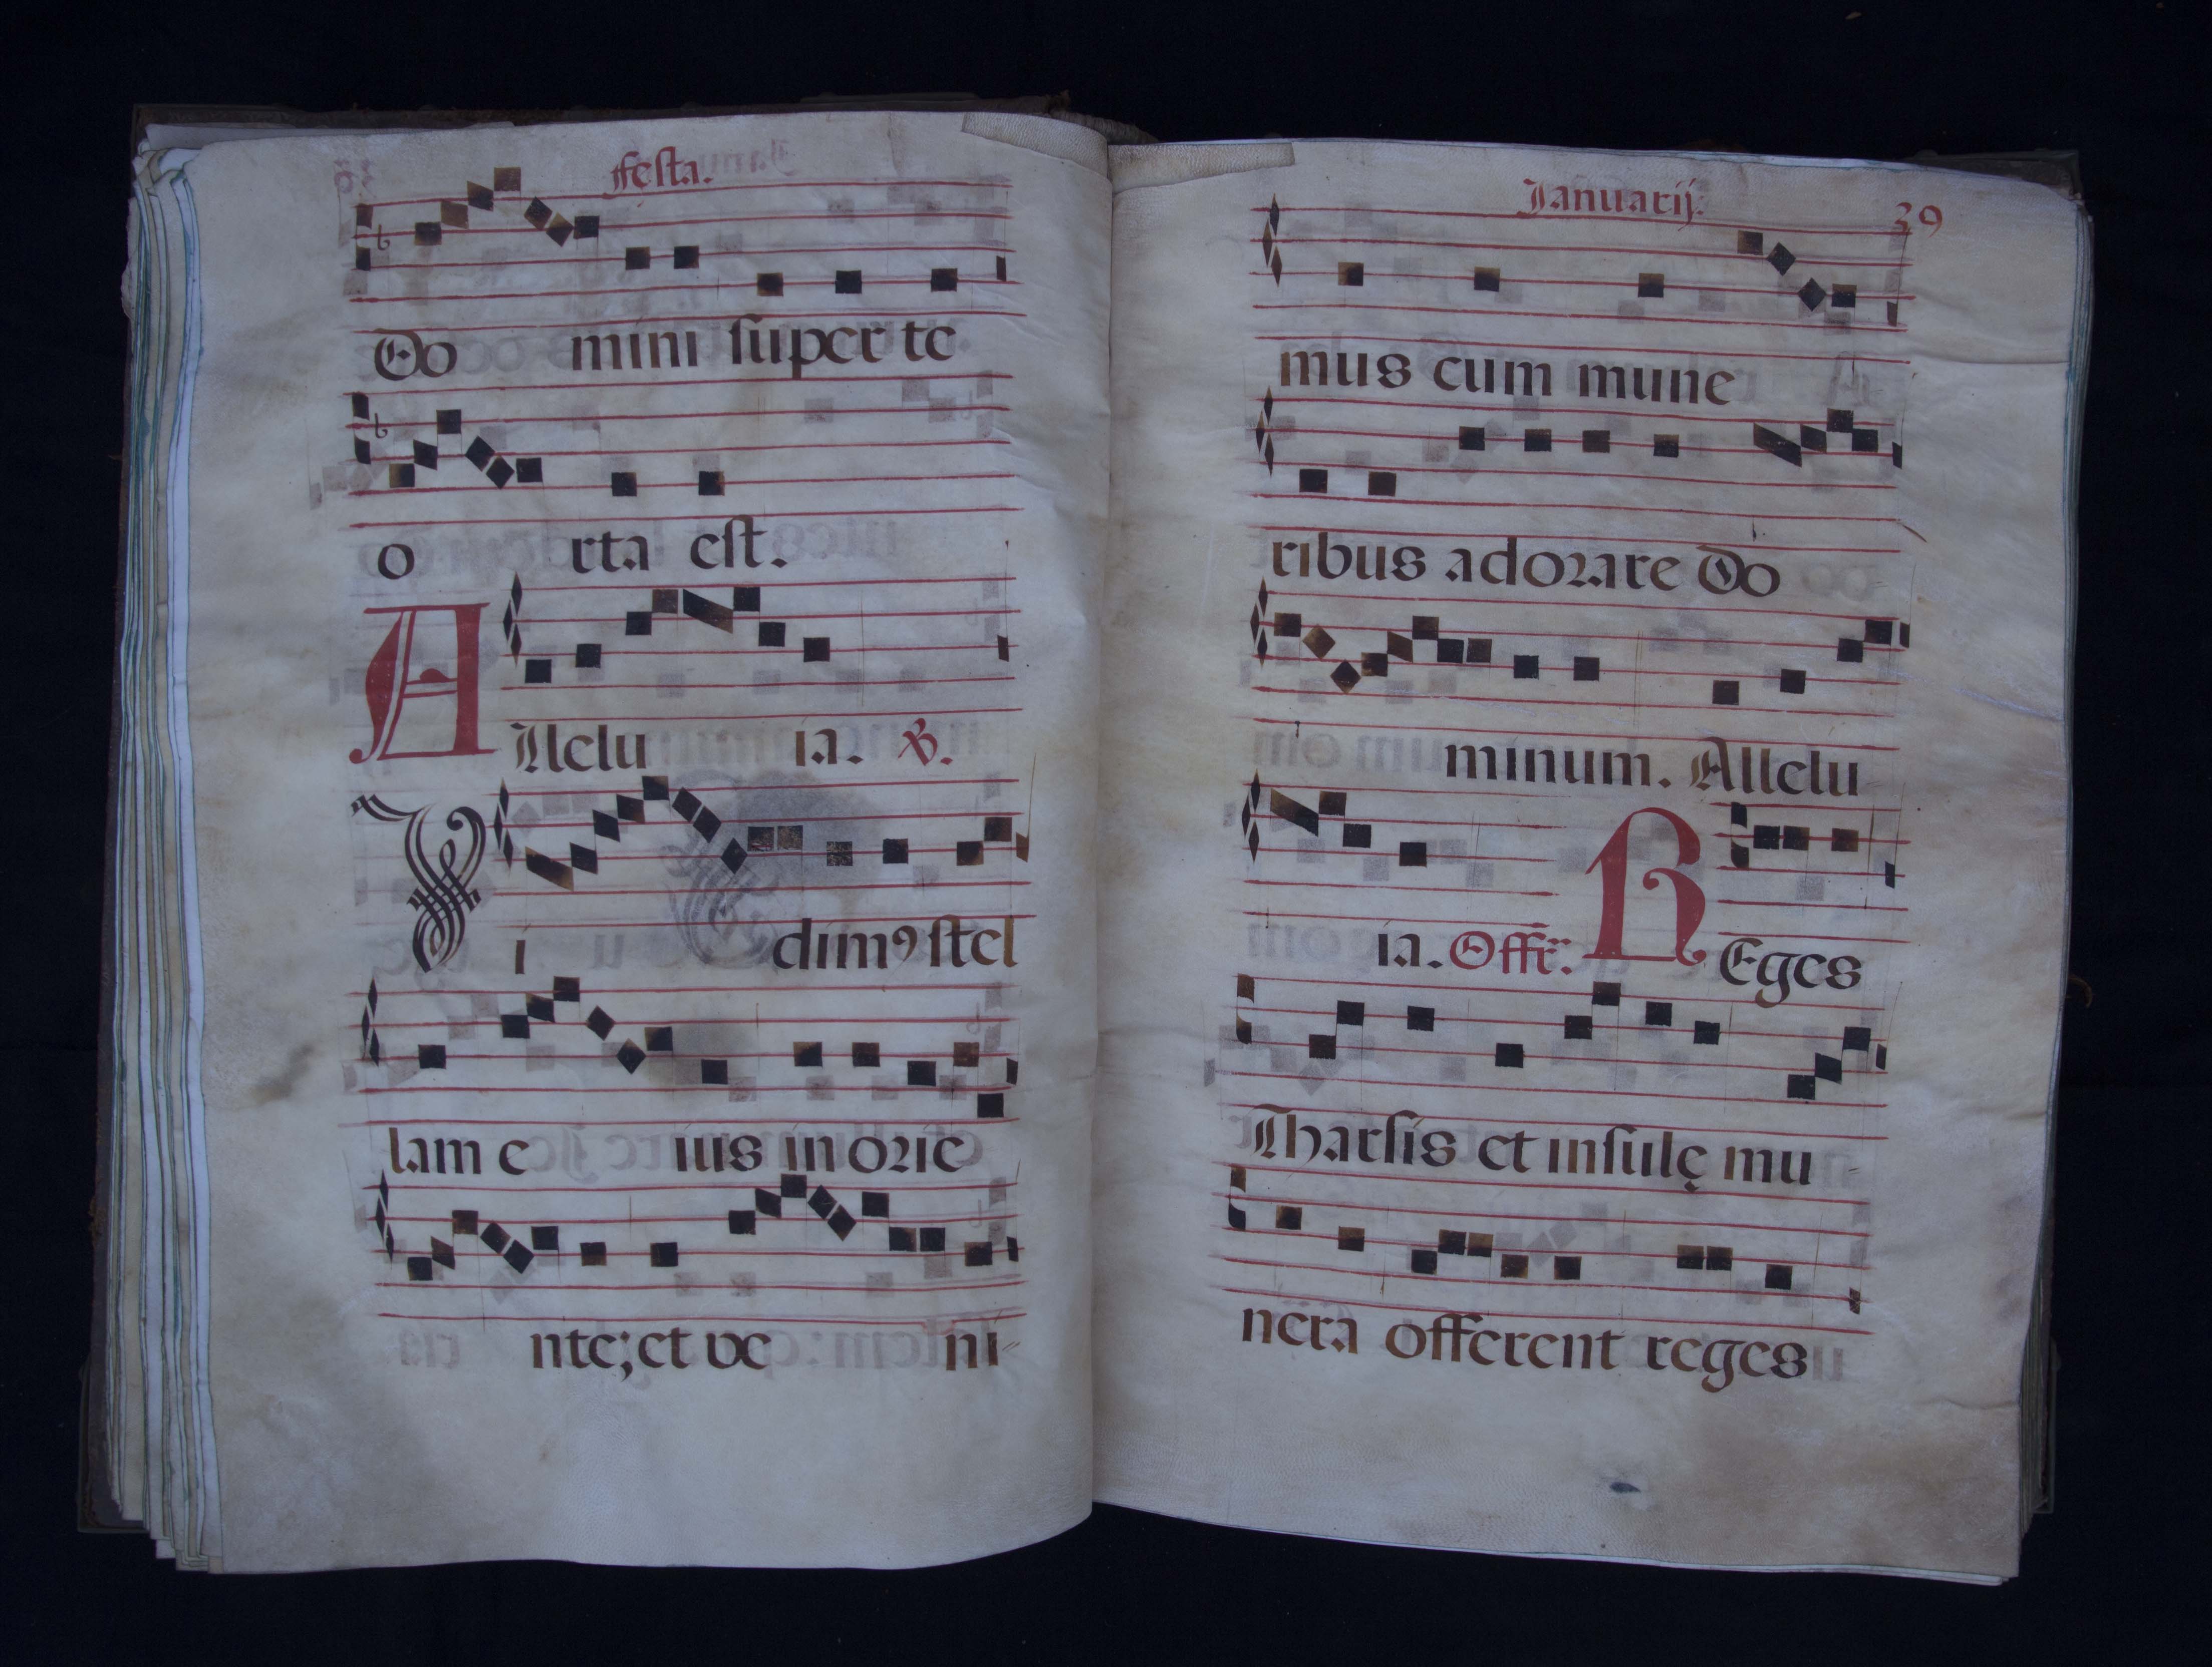 Festa.
Do mini super te
o rta est.
Allelu ia. ℣.
Vi dimꝰ stel
lam e ius in orie
nte; et ve ni-
Ianuarij.
39
mus cum mune
ribus adorare Do
minum. Allelu
ia. Offr̄. REges
Tharsis et insulę mu-
nera offerent reges